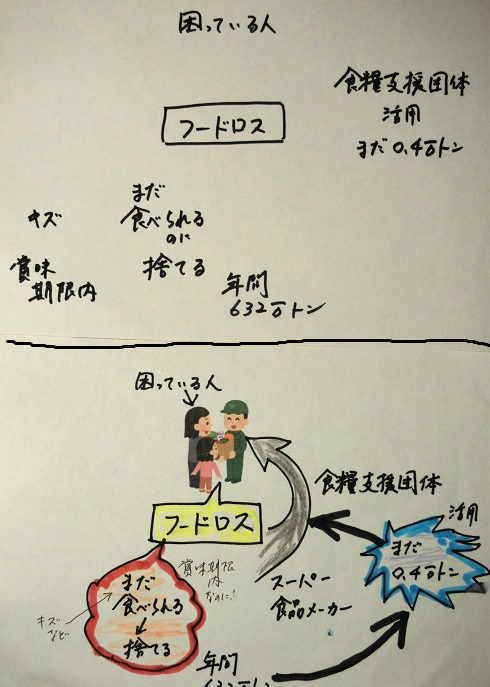 困っている人
食糧支援団体
活用
まだ 0.4万トン
フードロス
まだ
食べられる
のに
捨てる
キズ
賞味
期限内
年間
632万トン
困っている人
食糧支援団体
活用
まだ
0.4万トン
フードロス
賞味期限
内
なのに!
スーパー
食品メーカー
まだ
食べられる
捨てる
キズ
など
年間
632万トン